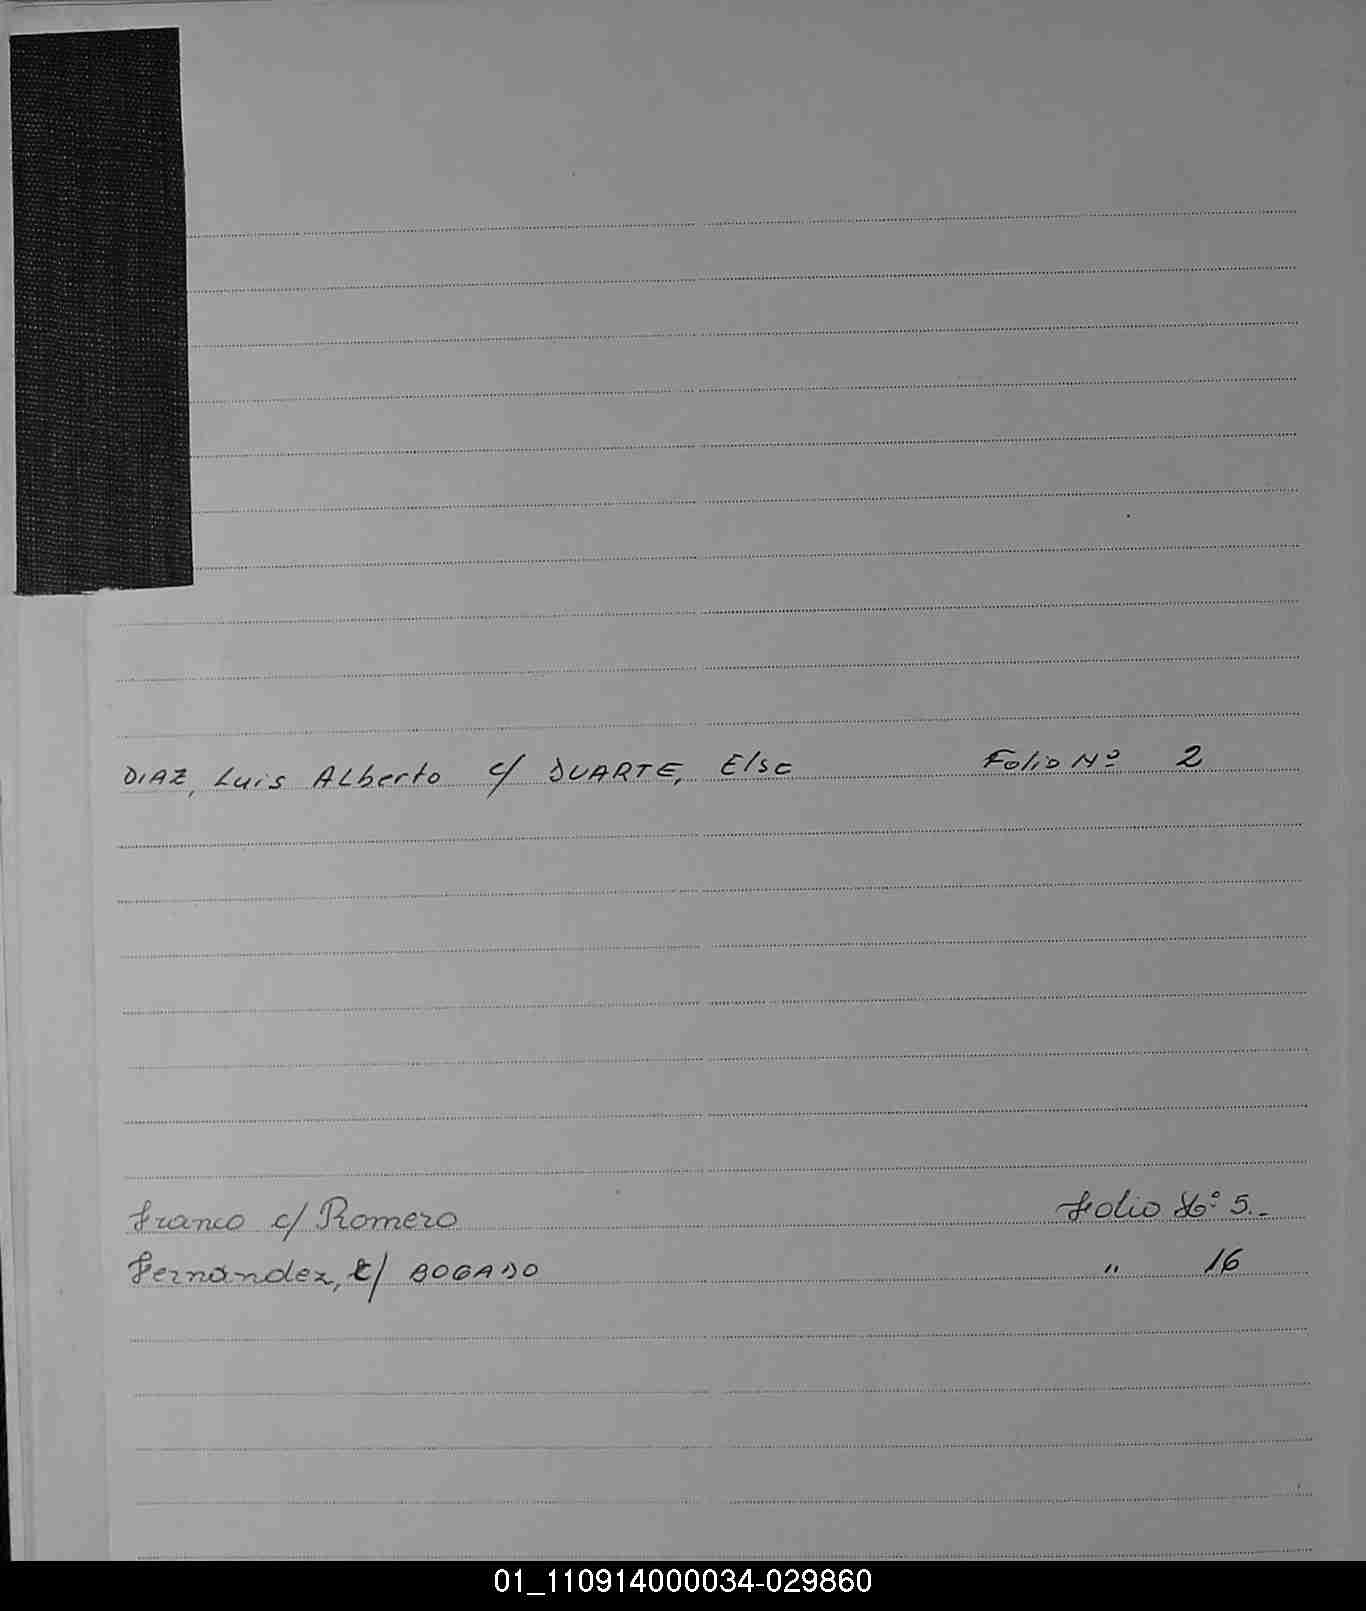 DIAZ, Luis ALberto c/ DUARTE, Elsa Folio Nº 2
Franco c/ Romero Folio No 5.-
Fernández, c/ BOGADO " 16
01_110914000034-029860